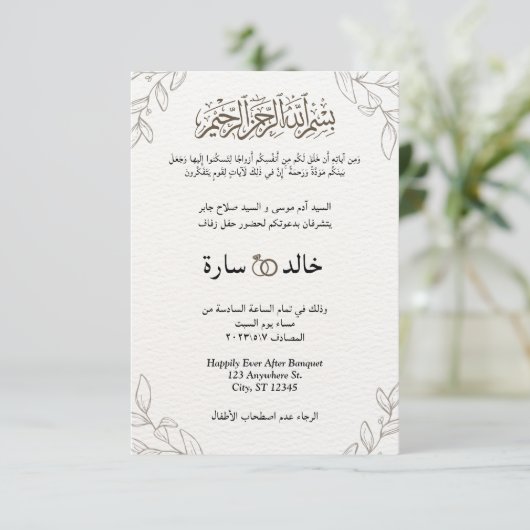 بِسْمِ اللَّهِ الرَّحْمَٰنِ الرَّحِيمِ
وَمِن آيَاتِهِ أَن خَلَقَ لَكُم مِن أَنفُسِكُم أَزواجًا لِتَسكُنوا إِلَيها وَجَعَلَ
بَينَكُم مَوَدَّةً وَرَحمَةً ۚ إِنَّ في ذٰلِكَ لَآيَاتٍ لِقَومٍ يَتَفَكَّرونَ
السيد آدم موسى و السيد صلاح جابر
يتشرفان بدعوتكم لحضور حفل زفاف
خالد سارة
وذلك في تمام الساعة السادسة من
مساء يوم السبت
المصادف ٢٠٢٣\٥\٧
Happily Ever After Banquet
123 Anywhere St.
City, ST 12345
الرجاء عدم اصطحاب الأطفال